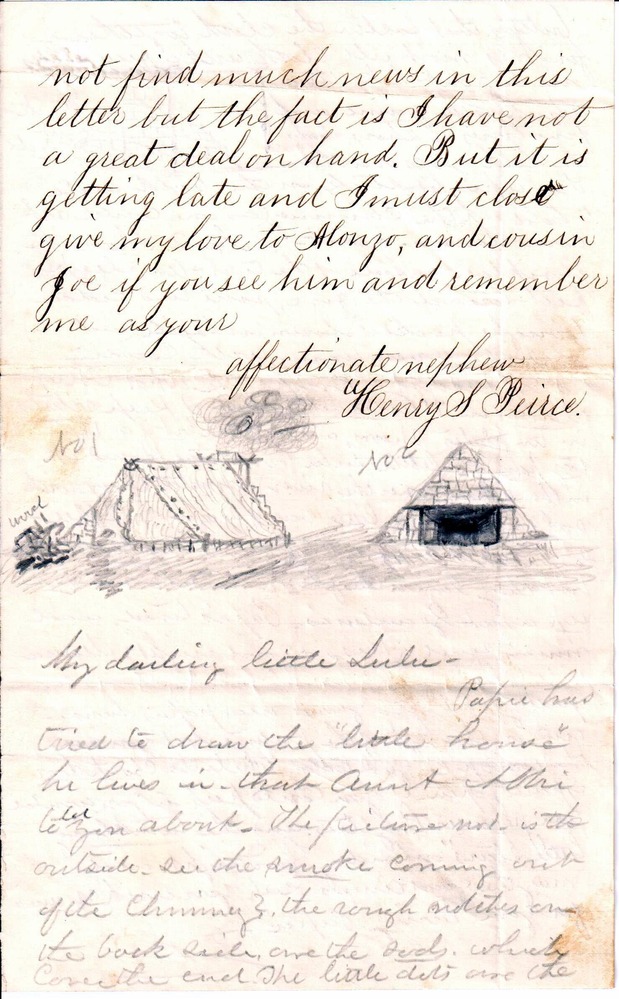 not find much news in this
letter but the fact is I have not
a great deal on hand. But it is
getting late and I must close
give my love to Alonzo, and cousin
Joe if you see him and remember
me as your
affectionate nephew
Henry S Peirce.
No 1
No
wood
My darling little Lulu -
Papie has
tried to draw the "little house"
he lives in - that Aunt Abbi
told you about - The picture No 1. is the
outside - see the smoke coming out
of the Chimney?. the rough notches on
the back side, are the sods. which
Cover the end. The little dots are the